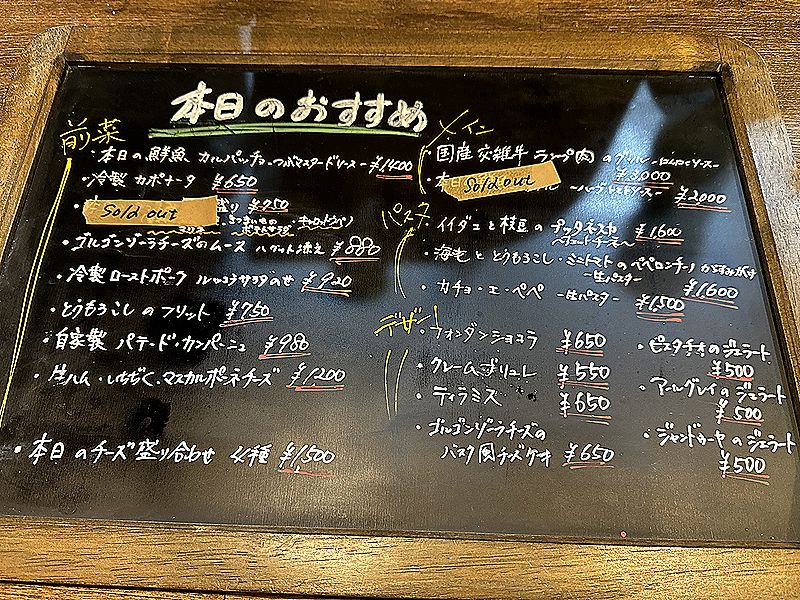 本日のおすすめ
前菜
・本日の鮮魚 カルパッチョ -つぶマスタードソース- ¥1,400
・冷製 カポナータ ¥650
Sold out 盛り ¥750
・ゴルゴンゾーラチーズのムース バゲット添え ¥880
・冷製ローストポーク ルッコラサラダのせ ¥920
・とうもろこしのフリット ¥750
・自家製 パテ・ド・カンパーニュ ¥980
・生ハム・いちぢく、マスカルポーネチーズ ¥1,200
・本日のチーズ盛り合わせ 4種 ¥1,500
メイン
・国産交雑牛 ランプ肉のグリル -にんにくソース-
¥3,000
Sold out ¥2,000
パスタ
・イイダコと枝豆のプッタネスカ ¥1,600
・海老ととうもろこし・ミニトマトのペペロンチーノ からすみがけ
-生パスタ- ¥1,600
・カチョ・エ・ペペ -生パスタ- ¥1,500
デザート
・フォンダンショコラ ¥650
・クレームブリュレ ¥550
・ティラミス ¥650
・ゴルゴンゾーラチーズの
バスク風チーズケーキ ¥650
・ピスタチオのジェラート
¥500
・アールグレイのジェラート
¥500
・ジャンドゥーヤのジェラート
¥500